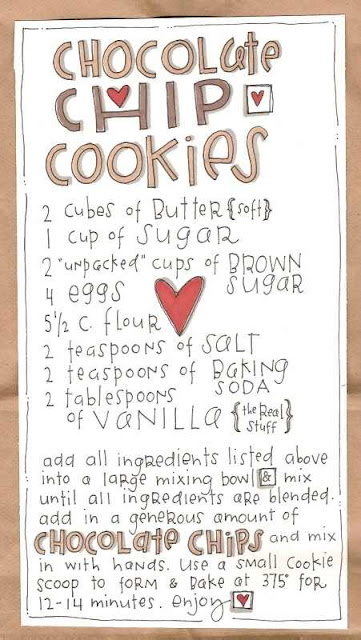 CHOCOLate
CHIP
COOKIES
2 cubes of BUTTER {soft}
1 cup of SUGAR
2 "unpacked" cups of BROWN
SUGAR
4 eggs
5 1/2 c. flour
2 teaspoons of SALT
2 teaspoons of BAKING
SODA
2 tablespoons
of VANILLA {the Real
Stuff}
add all ingredients listed above
into a large mixing bowl & mix
until all ingredients are blended.
add in a generous amount of
CHOCOLATE CHIPS and mix
in with hands. Use a small cookie
scoop to form & bake at 375° for
12-14 minutes. enjoy